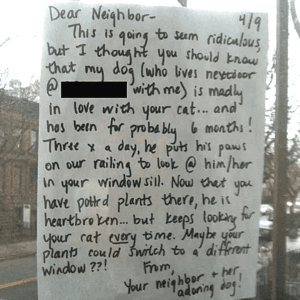 Dear Neighbor- 4/9
This is going to seem ridiculous,
but I thought you should know
that my dog (who lives nextdoor
@ with me) is madly
in love with your cat... and
has been for probably 6 months!
Three x a day, he puts his paws
on our railing to look @ him/her
in your windowsill. Now that you
have pottrd plants there, he is
heartbroken... but keeps looking for
your cat every time. Maybe your
plants could switch to a different
window ??!
From,
Your neighbor + her
adoring dog!